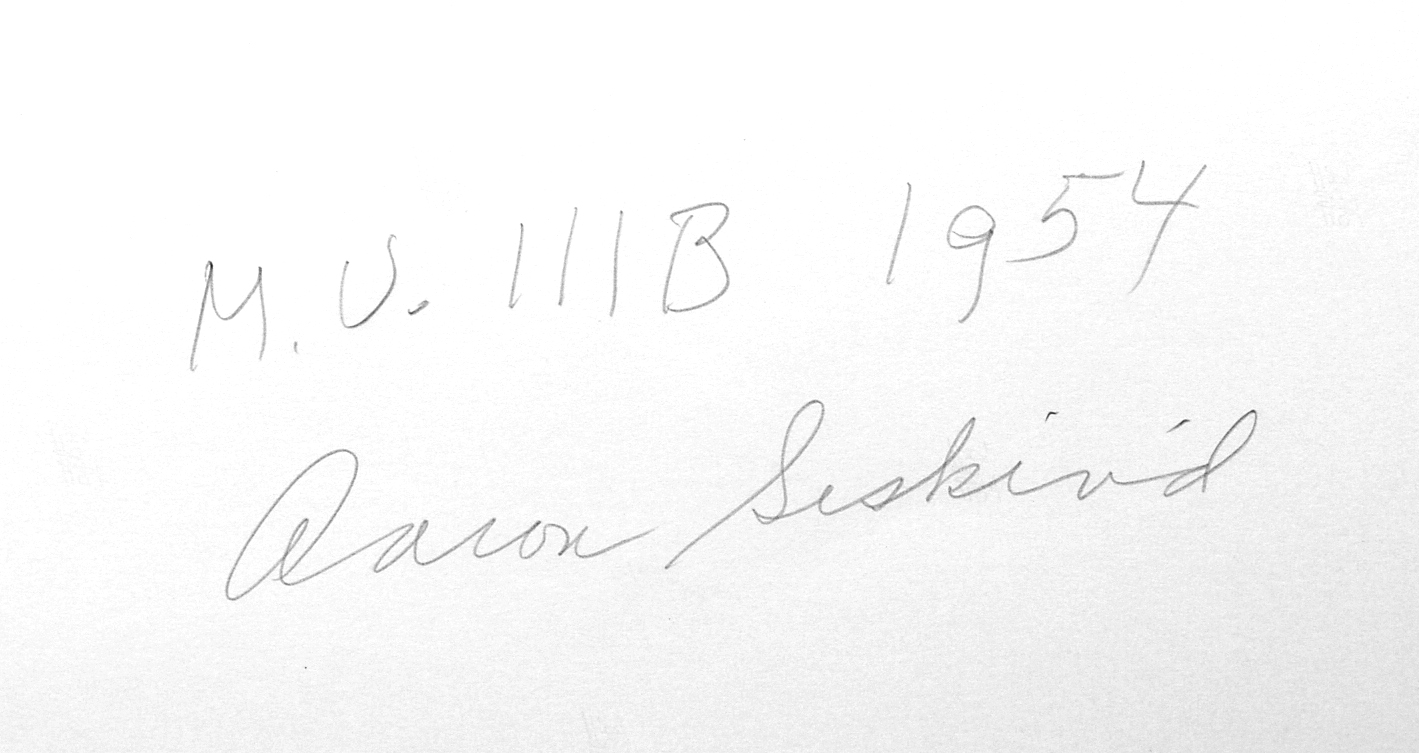 M. V. 111B 1954
Aaron Siskind